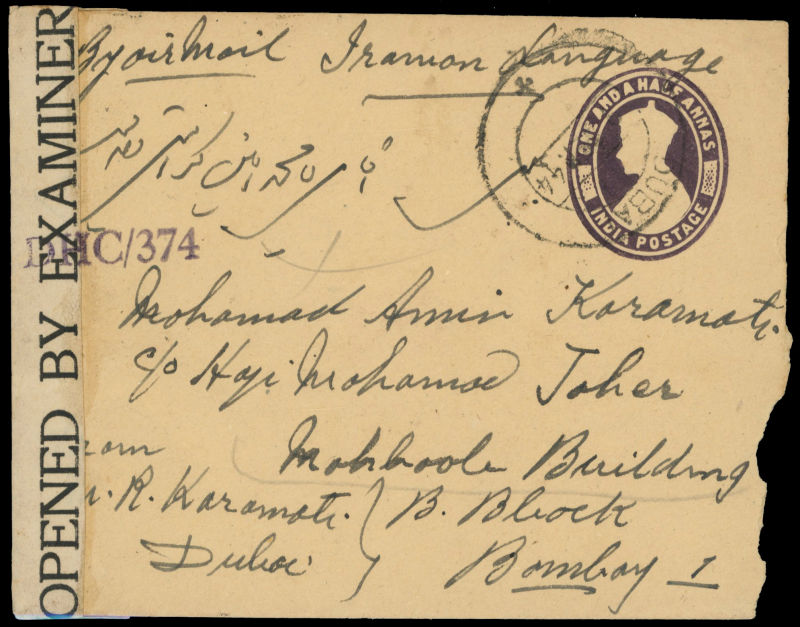 OPENED BY EXAMINER
By air Mail Iranian Language
ONE AND A HALF ANNAS
INDIA POSTAGE
DUBA
DHC/374
Mohamad Amin Karamati
c/o Haji Mohamad Taher
Mohboole Building
B. Block
Bombay 1
rom
R. Karamati
Dubai